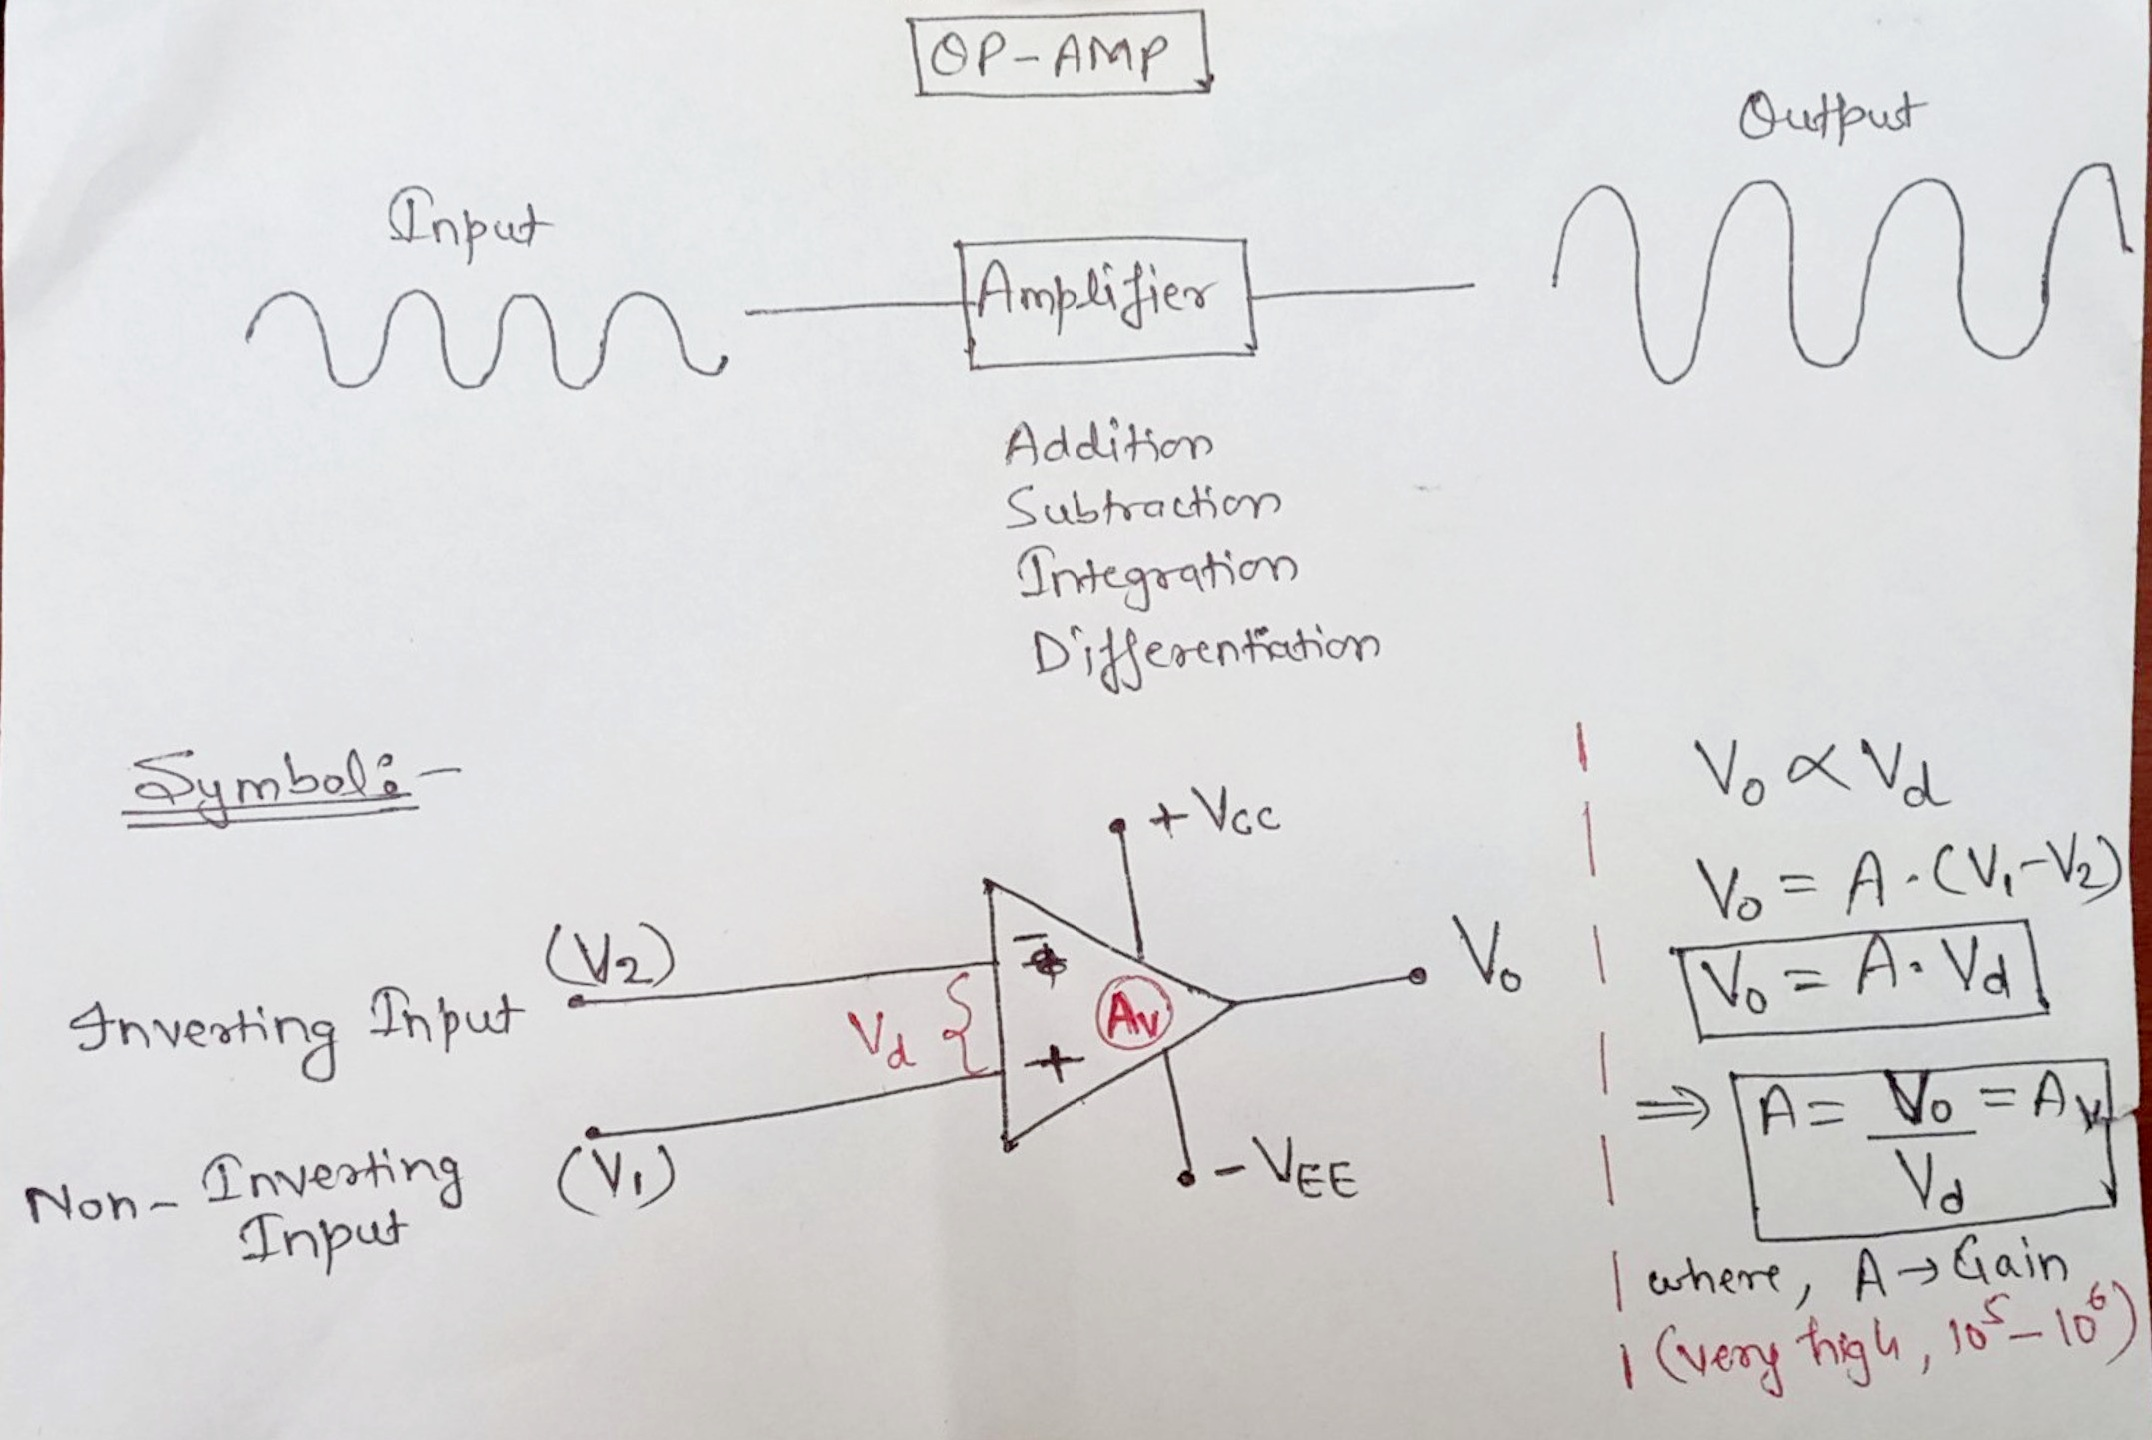 OP-AMP
Input
Output
Amplifier
Addition
Subtraction
Integration
Differentiation
Symbol:-
+VCC
Inverting Input (V2)
-
Vd {
Av
V0
+
Non-Inverting
Input
(V1)
-VEE
V0 ∝ Vd
V0 = A·(V1-V2)
V0 = A·Vd
⇒ A = V0/Vd = Av
where, A → Gain
(very high, 10^5 - 10^6)